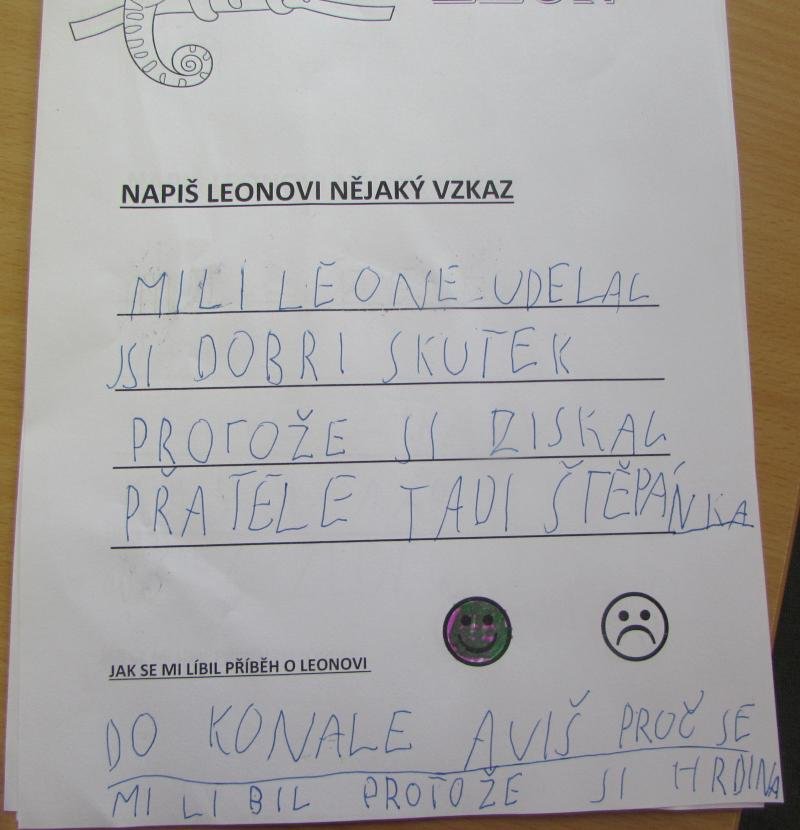 LEON
NAPIŠ LEONOVI NĚJAKÝ VZKAZ
MILI LĚONE UDELAL
JSI DOBRI SKUTEK
PROTOŽE JSI ZISKAL
PŘATELE TADI ŠTĚPÁNKA
JAK SE MI LÍBIL PŘÍBĚH O LEONOVI
DO KONALE AVIŠ PROČ SE
MI LIBIL PROTOŽE JSI HRDINA